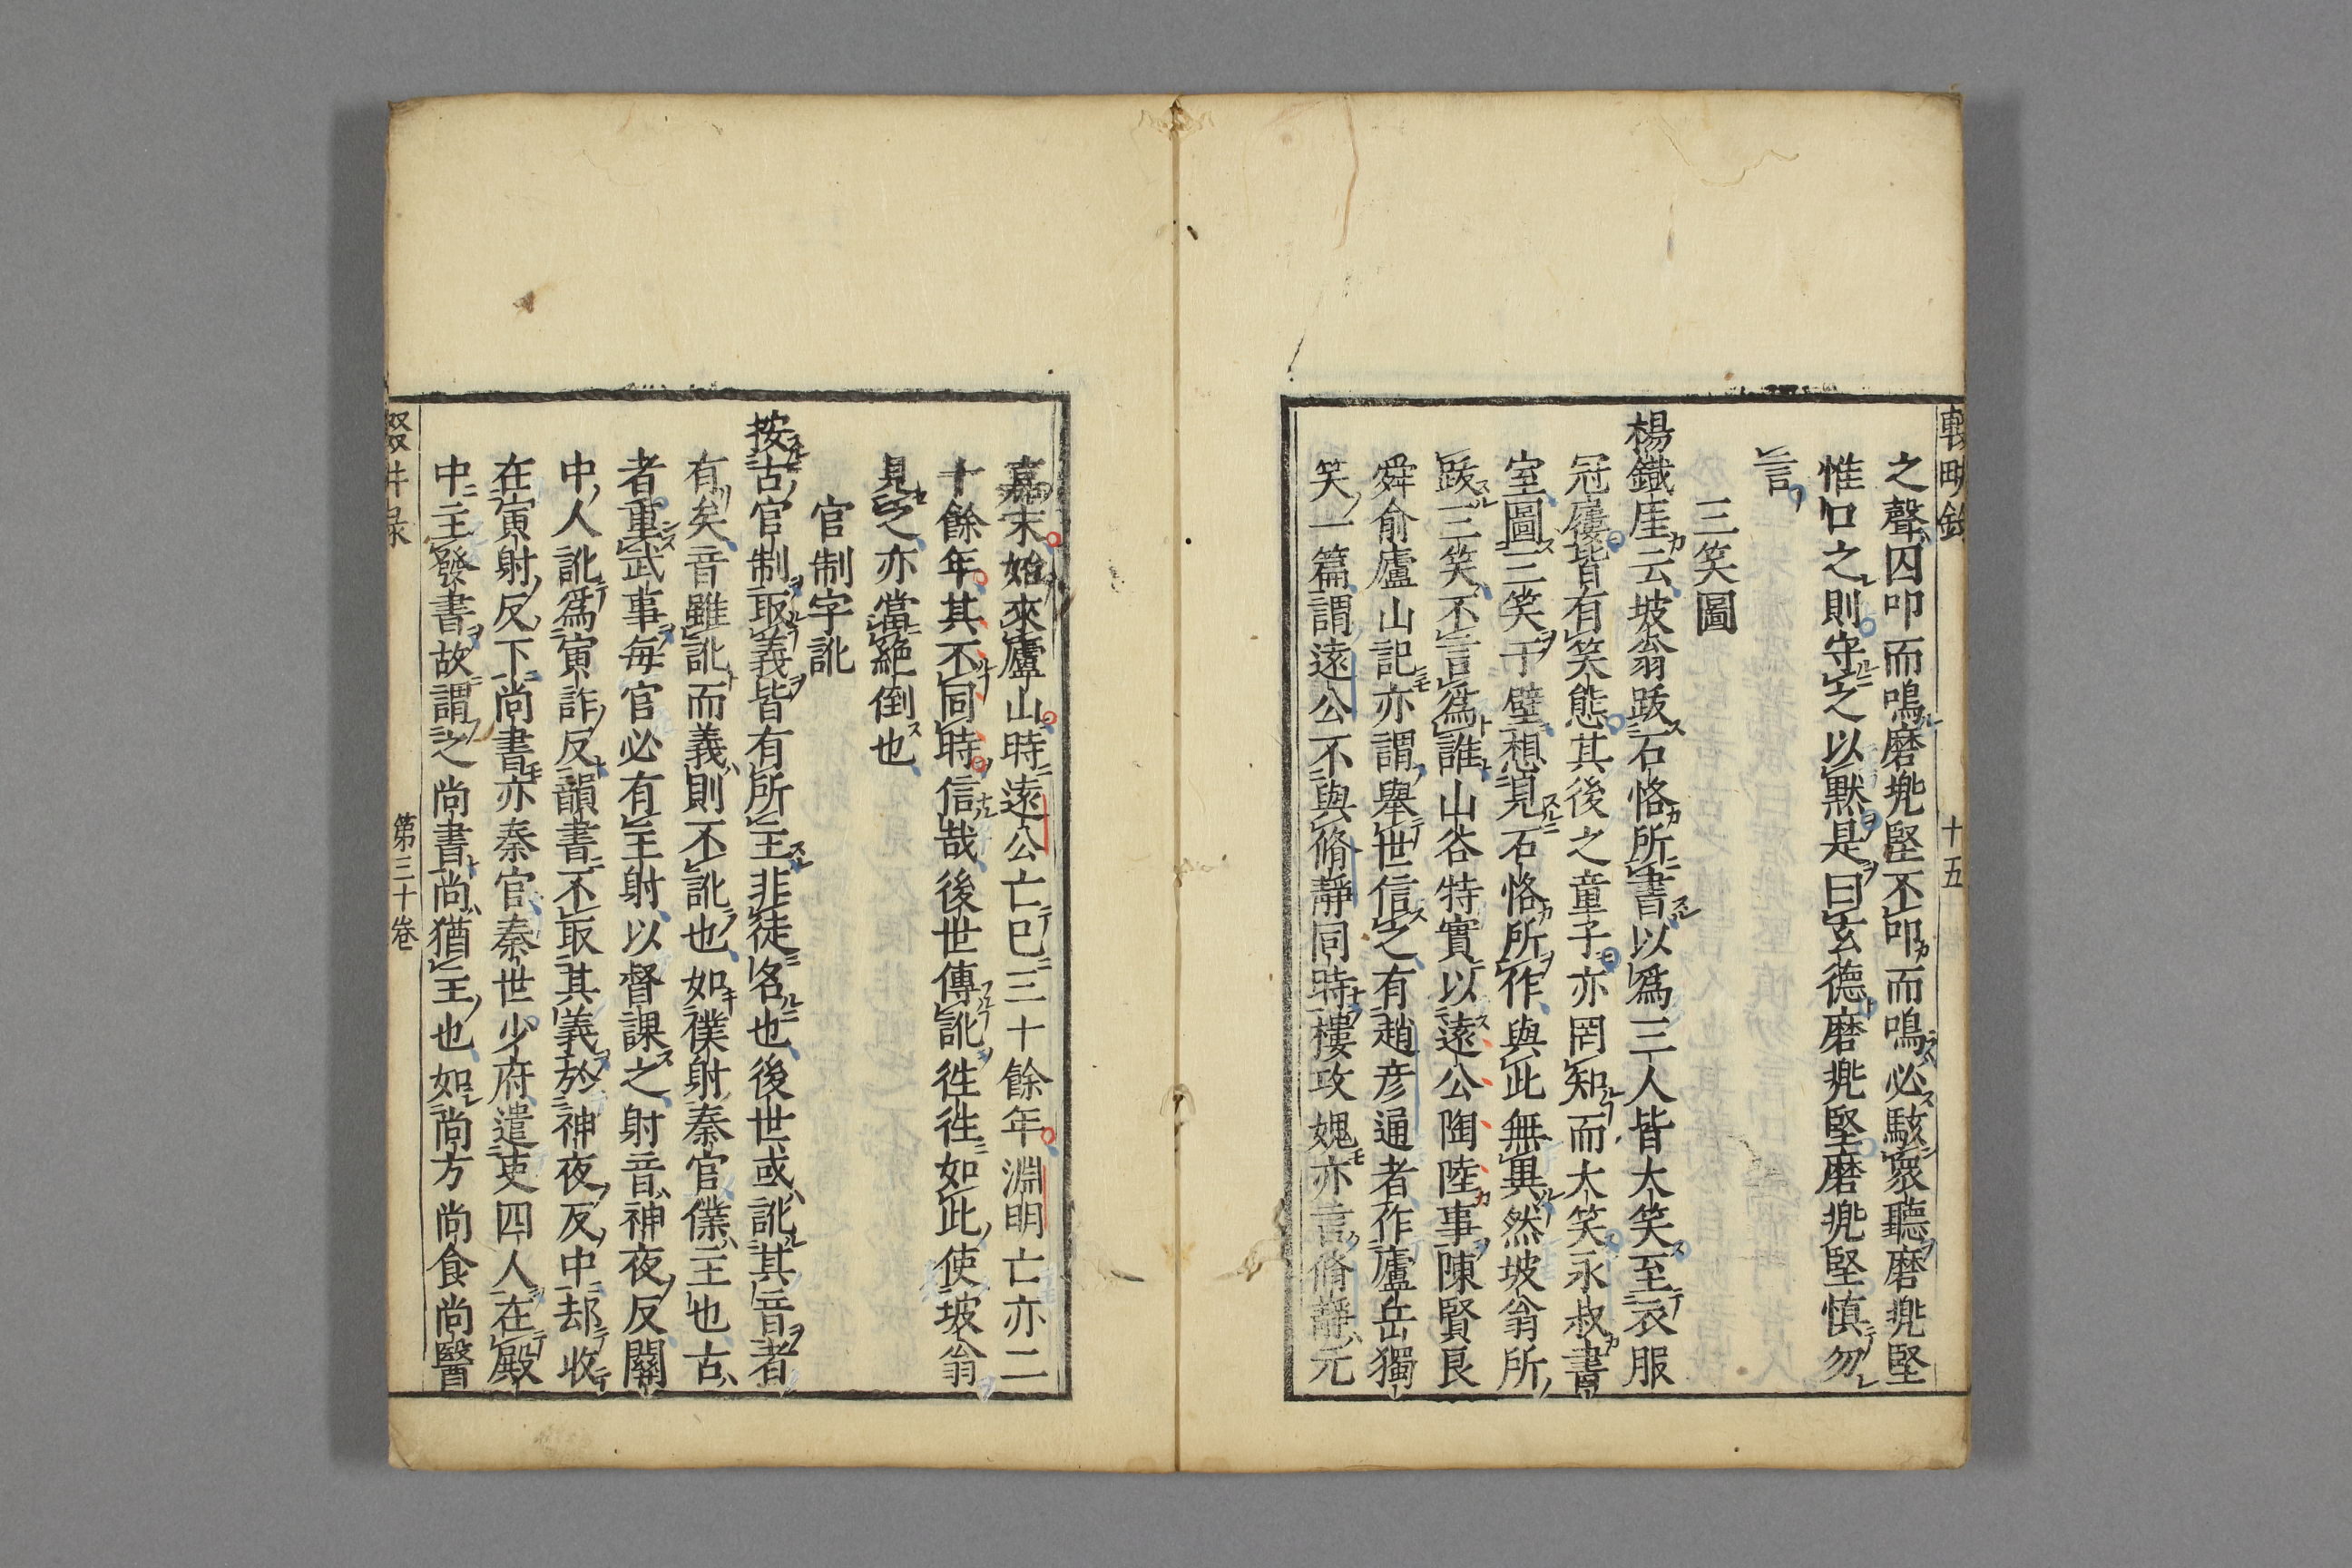 之聲囚叩而鳴磨兠堅不叩而鳴必駭衆聽磨兠堅
惟口之則守之以黙是曰玄德磨兠堅磨兠堅慎勿
言
三笑圖
楊鐵厓云坡翁跋石恪所畫以爲三人皆大笑至衣服
冠屨皆有笑態其後之童子亦罔知而大笑永叔書
室圖三笑于壁想見石恪所作與此無異然坡翁所
跋三笑不言爲誰山谷特實以遠公陶陸事陳賢良
舜俞廬山記亦謂舉世信之有趙彦通者作廬岳獨
笑一篇謂遠公不與脩靜同時樓攻媿亦言脩靜元
嘉末始來廬山時遠公亡巳三十餘年淵明亡亦二
十餘年其不同時信哉後世傳訛徃徃如此使坡翁
見之亦當絕倒也
官制字訛
按古官制取義皆有所主非徒名也後世或訛其音者
有矣音雖訛而義則不訛也如僕射秦官僕主也古
者重武事每官必有主射以督課之射音神夜反關
中人訛爲寅詐反韻書不取其義於神夜反中却收
在寅射反下尚書亦秦官秦世少府遣吏四人在殿
中主發書故謂之尚書尚猶主也如尚方尚食尚醫
十五
第三十卷